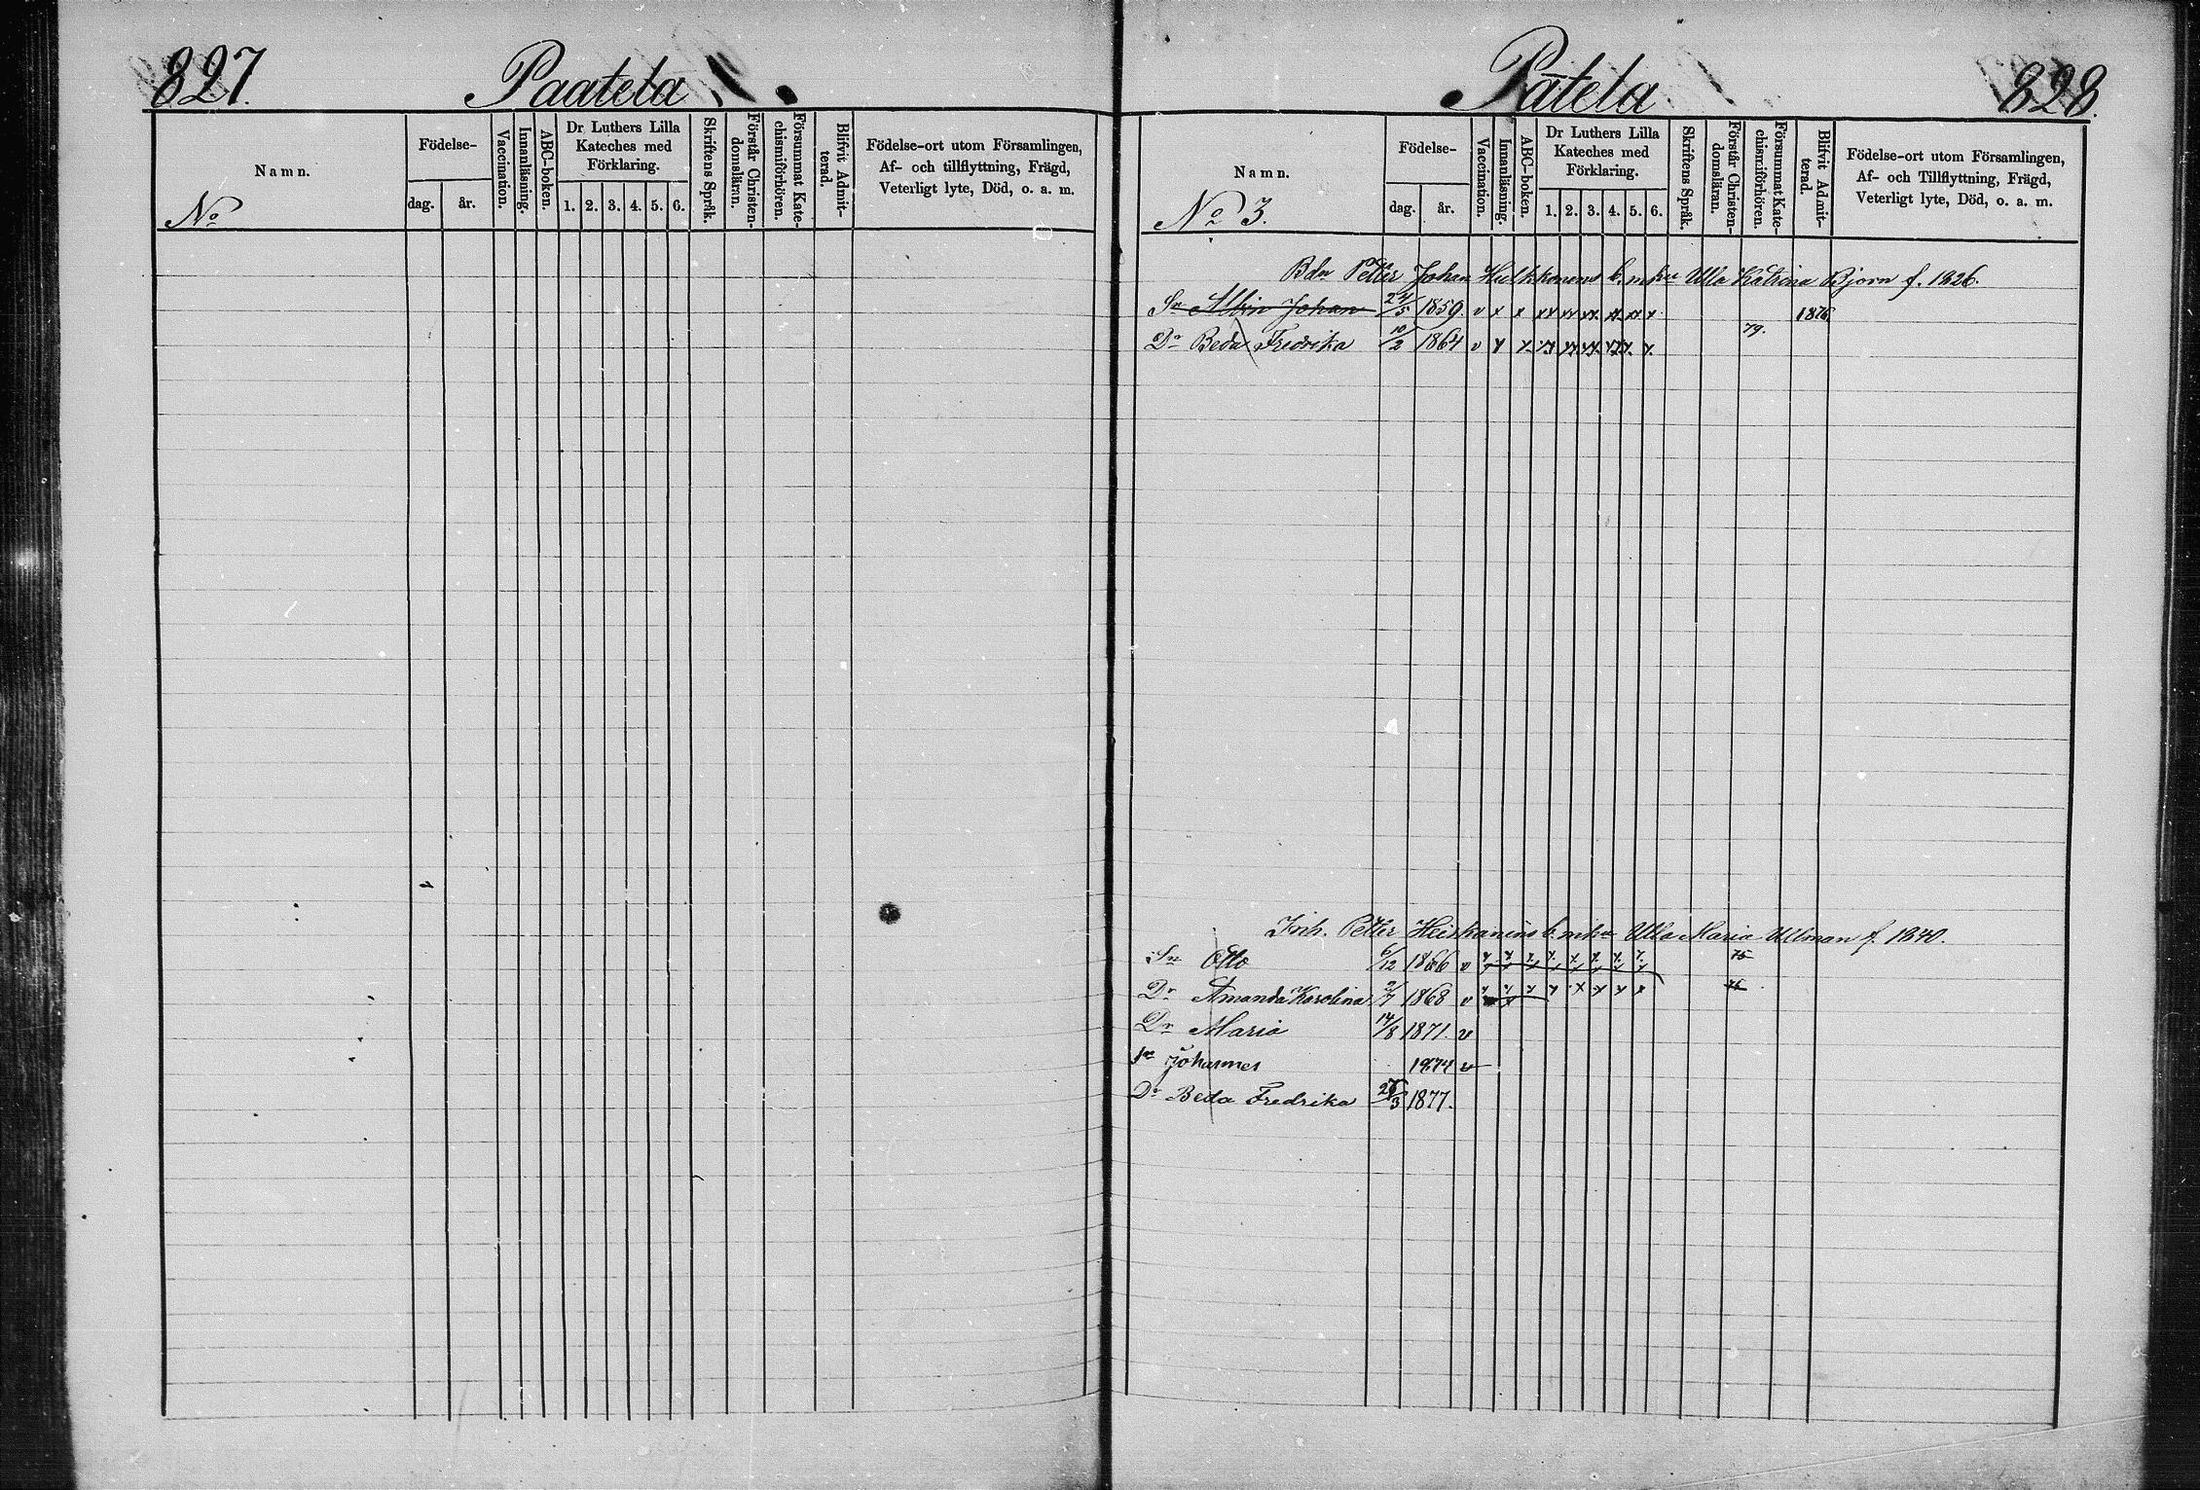 827.
Paatela
Namn.
Födelse-
dag.
år.
Vaccination.
Innanläsning.
ABC-boken.
Dr Luthers Lilla
Kateches med
Förklaring.
1. 2. 3. 4. 5. 6.
Skriftens Språk.
Förstår Christen-
domsläran.
Försummat Kate-
chismiförhören.
Blifvit Admit-
terad.
Födelse-ort utom Församlingen,
Af- och tillflyttning, Frägd,
Veterligt lyte, Död, o. a. m.
No
Pätela
828.
Namn.
Födelse-
dag.
år.
Vaccination.
Innanläsning.
ABC-boken.
Dr Luthers Lilla
Kateches med
Förklaring.
1. 2. 3. 4. 5. 6.
Skriftens Språk.
Förstår Christen-
domsläran.
Försummat Kate-
chismiförhören.
Blifvit Admit-
terad.
Födelse-ort utom Församlingen,
Af- och Tillflyttning, Frägd,
Veterligt lyte, Död, o. a. m.
No 3.
Bdn Petter Johan Hulkkonens b. mhu Ulla Katrina Bjorn f. 1826.
Sn Albin Johan 24/5 1859. v x x xx xx xx xx xx x 1876
Dr Beda Fredrika 10/2 1864 v x x 79.
Inh. Petter Heiskanens b. mhu Ulla Maria Ullman f. 1840.
Sn Otto 6/12 1866 v x x x x x x x x 75
Dr Amanda Karolina 2/7 1868 v x x x x x x x x
Dr Maria 14/8 1871. v
Sn Johannes 1874 v
Dr Beda Fredrika 1877.